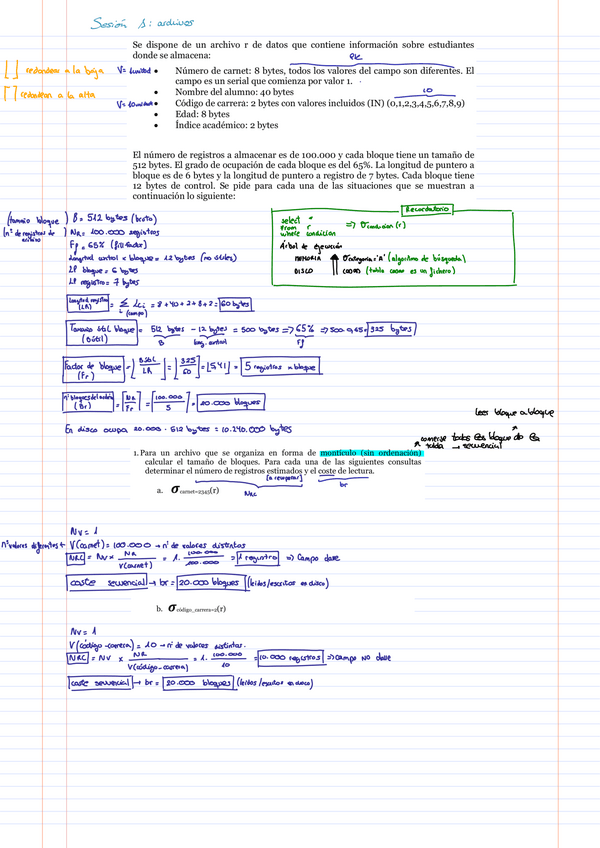 Sesión 1: archivos
Se dispone de un archivo r de datos que contiene información sobre estudiantes
donde se almacena:
PK
⌊ ⌋ redondear a la baja
V= 1 unidad
• Número de carnet: 8 bytes, todos los valores del campo son diferentes. El
campo es un serial que comienza por valor 1.
⌈ ⌉ redondear a la alta
• Nombre del alumno: 40 bytes
10
• Código de carrera: 2 bytes con valores incluidos (IN) (0,1,2,3,4,5,6,7,8,9)
• Edad: 8 bytes
• Índice académico: 2 bytes
El número de registros a almacenar es de 100.000 y cada bloque tiene un tamaño de
512 bytes. El grado de ocupación de cada bloque es del 65%. La longitud de puntero a
bloque es de 6 bytes y la longitud de puntero a registro de 7 bytes. Cada bloque tiene
12 bytes de control. Se pide para cada una de las situaciones que se muestran a
continuación lo siguiente:
(tamaño bloque) B = 512 bytes (bruto)
(nº de registros de archivo) NR = 100.000 registros
Ff = 65% (fill factor)
Longitud control x bloque = 12 bytes (no útiles)
LP bloque = 6 bytes
LP registro = 7 bytes
Recordatorio
select *
from r
where condition
=> σ condicion (r)
Árbol de ejecución
MEMORIA
(algoritmo de búsqueda)
DISCO
Longitud registro (LR) = Σ Lci = 8 + 40 + 2 + 8 + 2 = 60 bytes
i (campo)
Tamaño útil bloque (Bútil) = 512 bytes - 12 bytes = 500 bytes => 65% => 500·0,65 = 325 bytes
B long. control Ff
Factor de bloque (Fr) = ⌊Bútil / LR⌋ = ⌊325 / 60⌋ = ⌊5,41⌋ = 5 registros x bloque
nº bloques del archivo (Br) = ⌈NR / Fr⌉ = ⌈100.000 / 5⌉ = 20.000 bloques
Leer bloque a bloque
En disco ocupa 20.000 · 512 bytes = 10.240.000 bytes
todos los bloques de la
tabla → secuencial
1. Para un archivo que se organiza en forma de montículo (sin ordenación)
calcular el tamaño de bloques. Para cada una de las siguientes consultas
determinar el número de registros estimados y el coste de lectura.
[a recuperar]
NRC
br
a. σcarnet=2345(r)
Nv = 1
nº valores diferentes ← V(carnet) = 100.000 → nº de valores distintos
NRC = Nv x NR / V(carnet) = 1 · 100.000 / 100.000 = 1 registro => Campo clave
coste secuencial → br = 20.000 bloques (leídos/escritos en disco)
b. σcódigo_carrera=2(r)
Nv = 1
V(código-carrera) = 10 → nº de valores distintos.
NRC = Nv x NR / V(código-carrera) = 1 · 100.000 / 10 = 10.000 registros => Campo NO clave
coste secuencial → br = 20.000 bloques (leídos/escritos en disco)